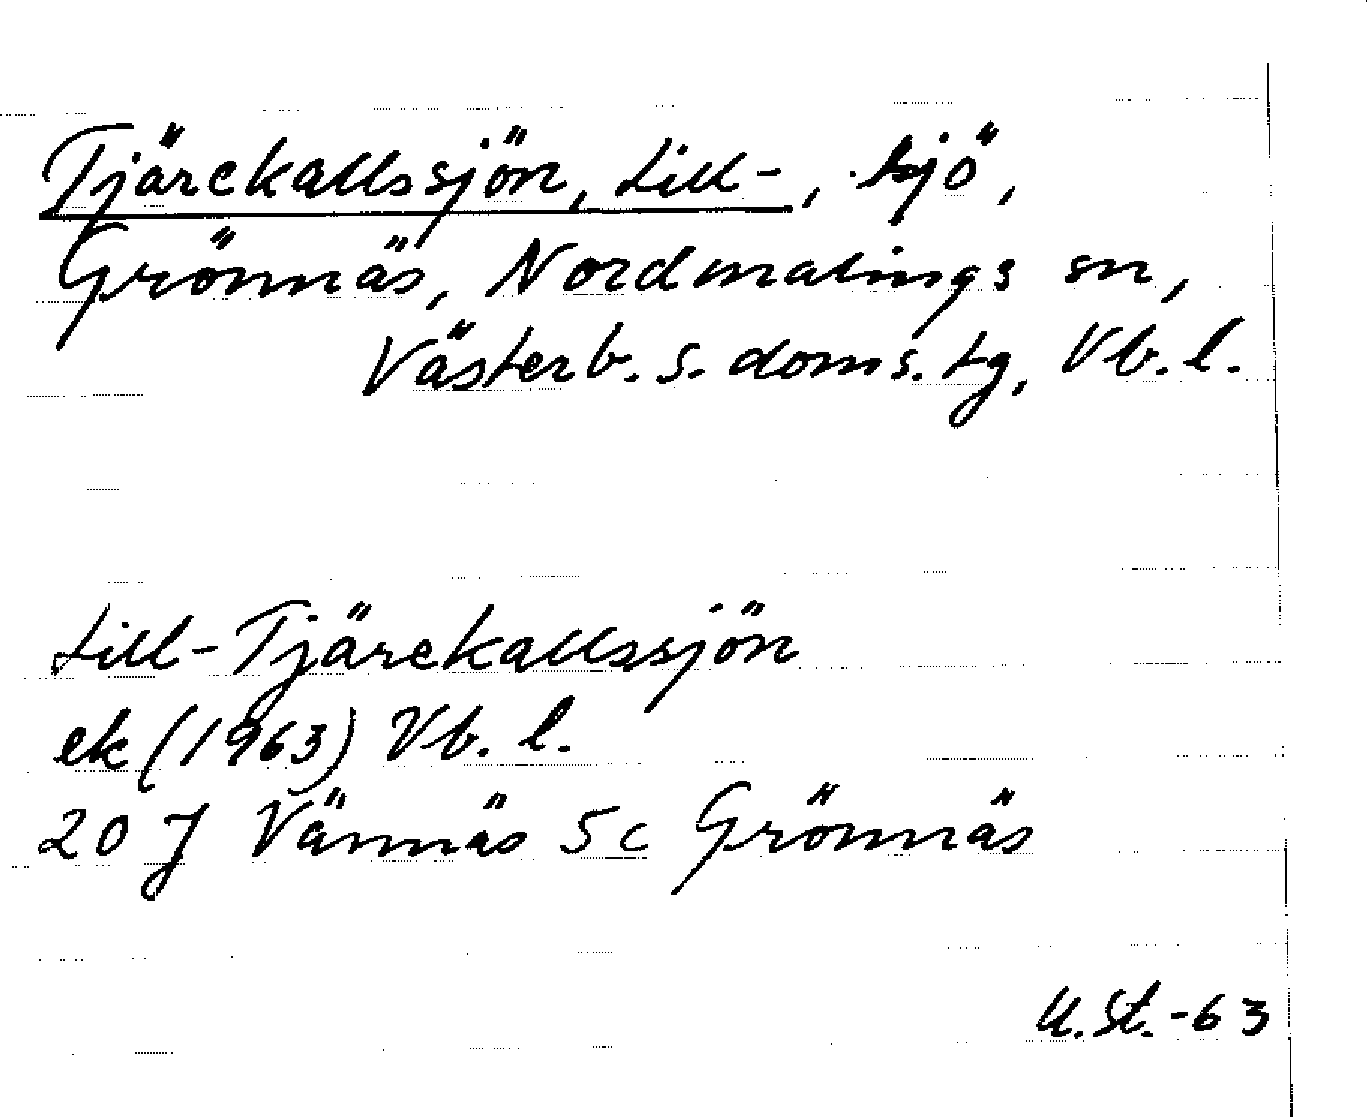 Tjärekallssjön, Lill-, sjö,
Grönnäs, Nordmalings sn,
Västerb. s. doms. tg, Vb. l.
Lill-Tjärekallssjön
ek (1963) Vb. l.
20 J Vännäs 5c Grönnäs
U. St. -63